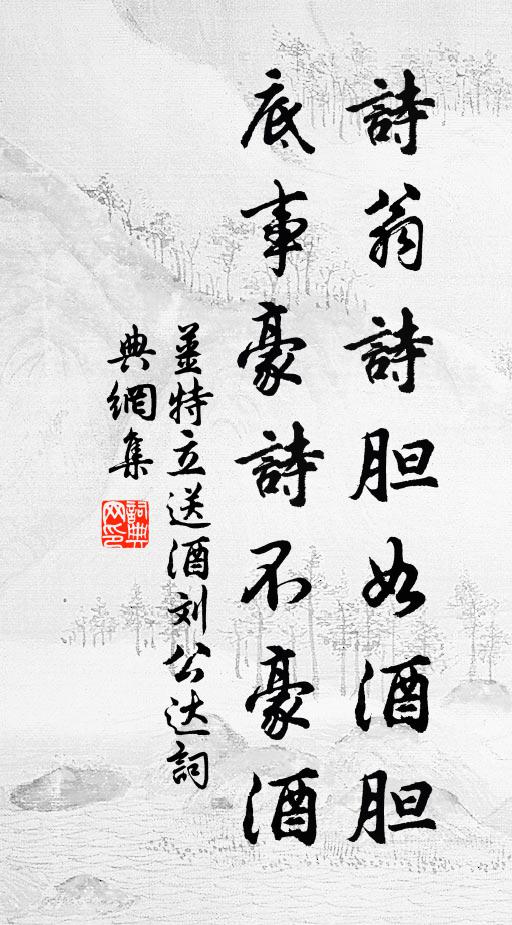 詩翁詩胆如酒胆
底事豪詩不豪酒
姜特立送酒刘公达詞
典網集
詞典网印